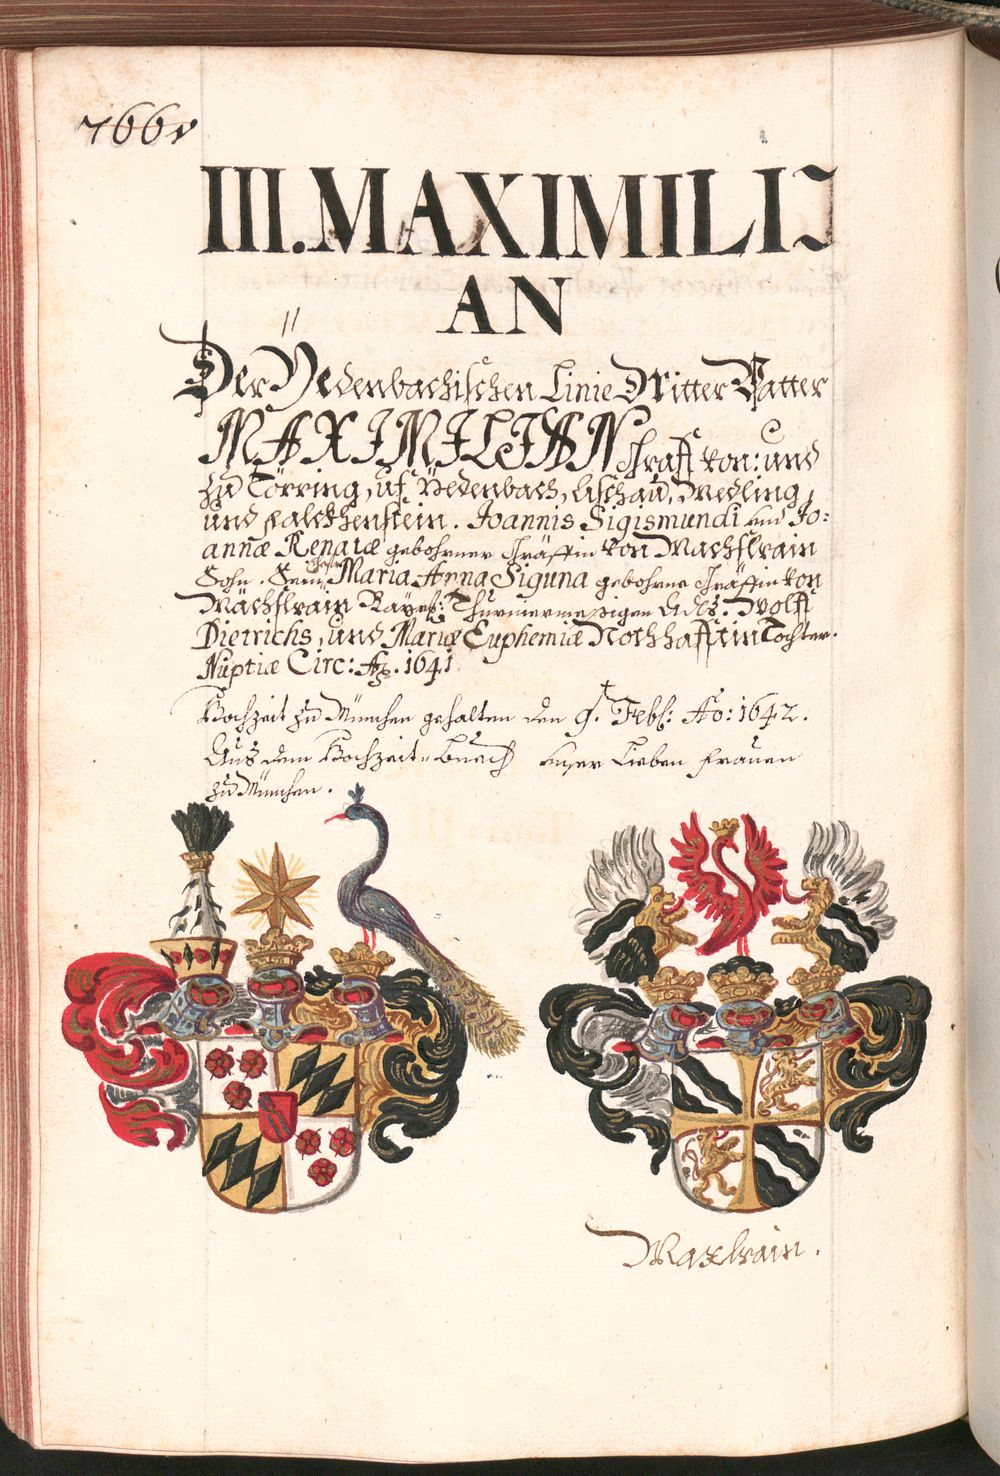 766v
III. MAXIMILI
AN
Der Yedenbachischen Linie Dritter Vatter
MAXIMILIAN Graff von: und
zu Törring, uf Yedenbach, Eischau, Medling,
und Falckhenstein. Joannis Sigismundi und Jo:
annæ Renatæ gebohrner Gräffin von Machslrain
Sohn. Sein Maria Anna Siguna gebohrne Gräffin von
Mächslrain Bayer: Thurniermeßigen Adls: Wolff
Dietrichs, und Mariæ Euphemiæ Nothhafftin Tochter.
Nuptiæ Circ: Aõ. 1641
Hochzeit zu München gehalten den 9. Feb: Aõ: 1642.
Aus dem Hochzeit-buech unser Lieben Frauen
zu München.
Maxlrain.